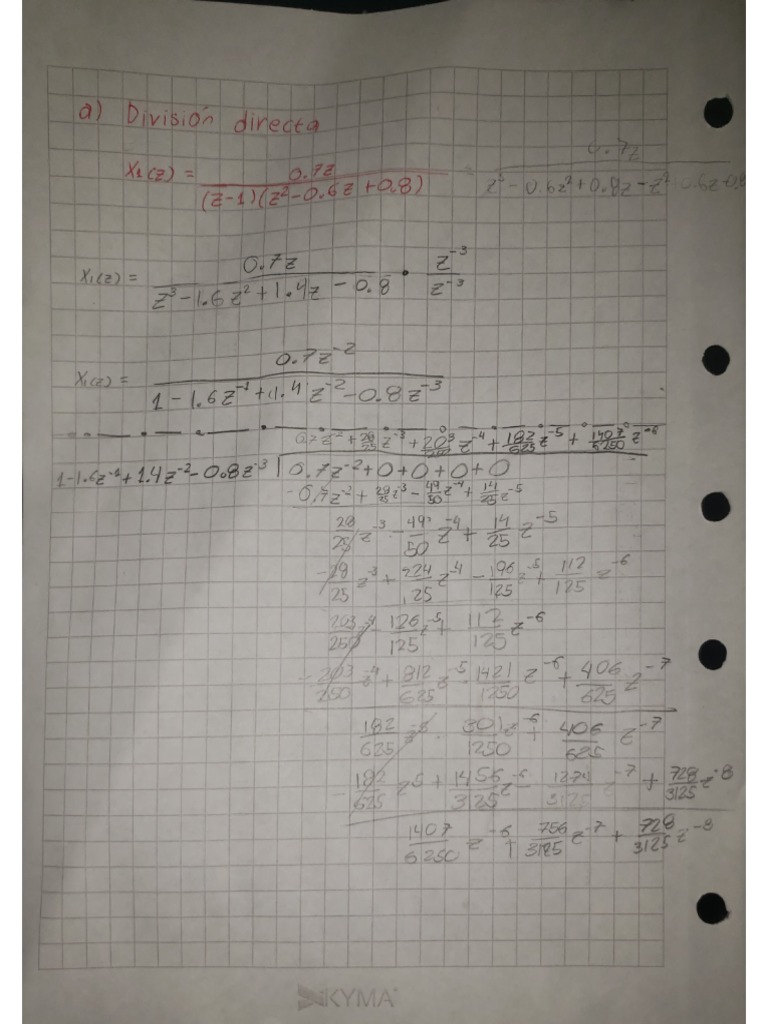 a) División directa
X1(z) = 0.7z / (z-1)(z²-0.6z+0.8) = 0.7z / z³-0.6z²+0.8z-z²+0.6z-0.8
X1(z) = 0.7z / z³-1.6z²+1.4z-0.8 · z⁻³ / z⁻³
X1(z) = 0.7z⁻² / 1-1.6z⁻¹+1.4z⁻²-0.8z⁻³
0.7z⁻² + 28/25 z⁻³ + 203/250 z⁻⁴ + 182/625 z⁻⁵ + 1407/6250 z⁻⁶
1-1.6z⁻¹+1.4z⁻²-0.8z⁻³ | 0.7z⁻²+0+0+0+0
-0.7z⁻² + 28/25 z⁻³ - 49/50 z⁻⁴ + 14/25 z⁻⁵
28/25 z⁻³ - 49/50 z⁻⁴ + 14/25 z⁻⁵
-28/25 z⁻³ + 224/125 z⁻⁴ - 196/125 z⁻⁵ + 112/125 z⁻⁶
203/250 z⁻⁴ - 126/125 z⁻⁵ + 112/125 z⁻⁶
-203/250 z⁻⁴ + 812/625 z⁻⁵ - 1421/1250 z⁻⁶ + 406/625 z⁻⁷
182/625 z⁻⁵ - 301/1250 z⁻⁶ + 406/625 z⁻⁷
-182/625 z⁵ + 1456/3125 z⁻⁶ - 1274/3125 z⁻⁷ + 728/3125 z⁻⁸
1407/6250 z⁻⁶ + 756/3125 z⁻⁷ + 728/3125 z⁻⁸
KYMA